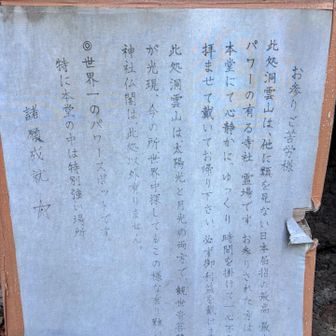 お参りご苦労様
此処洞雲山は、他に類を見ない日本屈指の最高、最
パワーの有る寺社、霊場です。お参りされた方は
本堂にて心静かに、ゆっくり、時間を掛けて一心不
拝ませて戴いてお帰り下さい。必ず御利益を戴
此処洞雲山は太陽光と月光の両方で、観世音菩
が光現、今の所世界中探してもこの様な有り難
神社仏閣は此処以外有りません。
◎世界一のパワースポットです。
特に本堂の中は特別強い場所
諸願成就